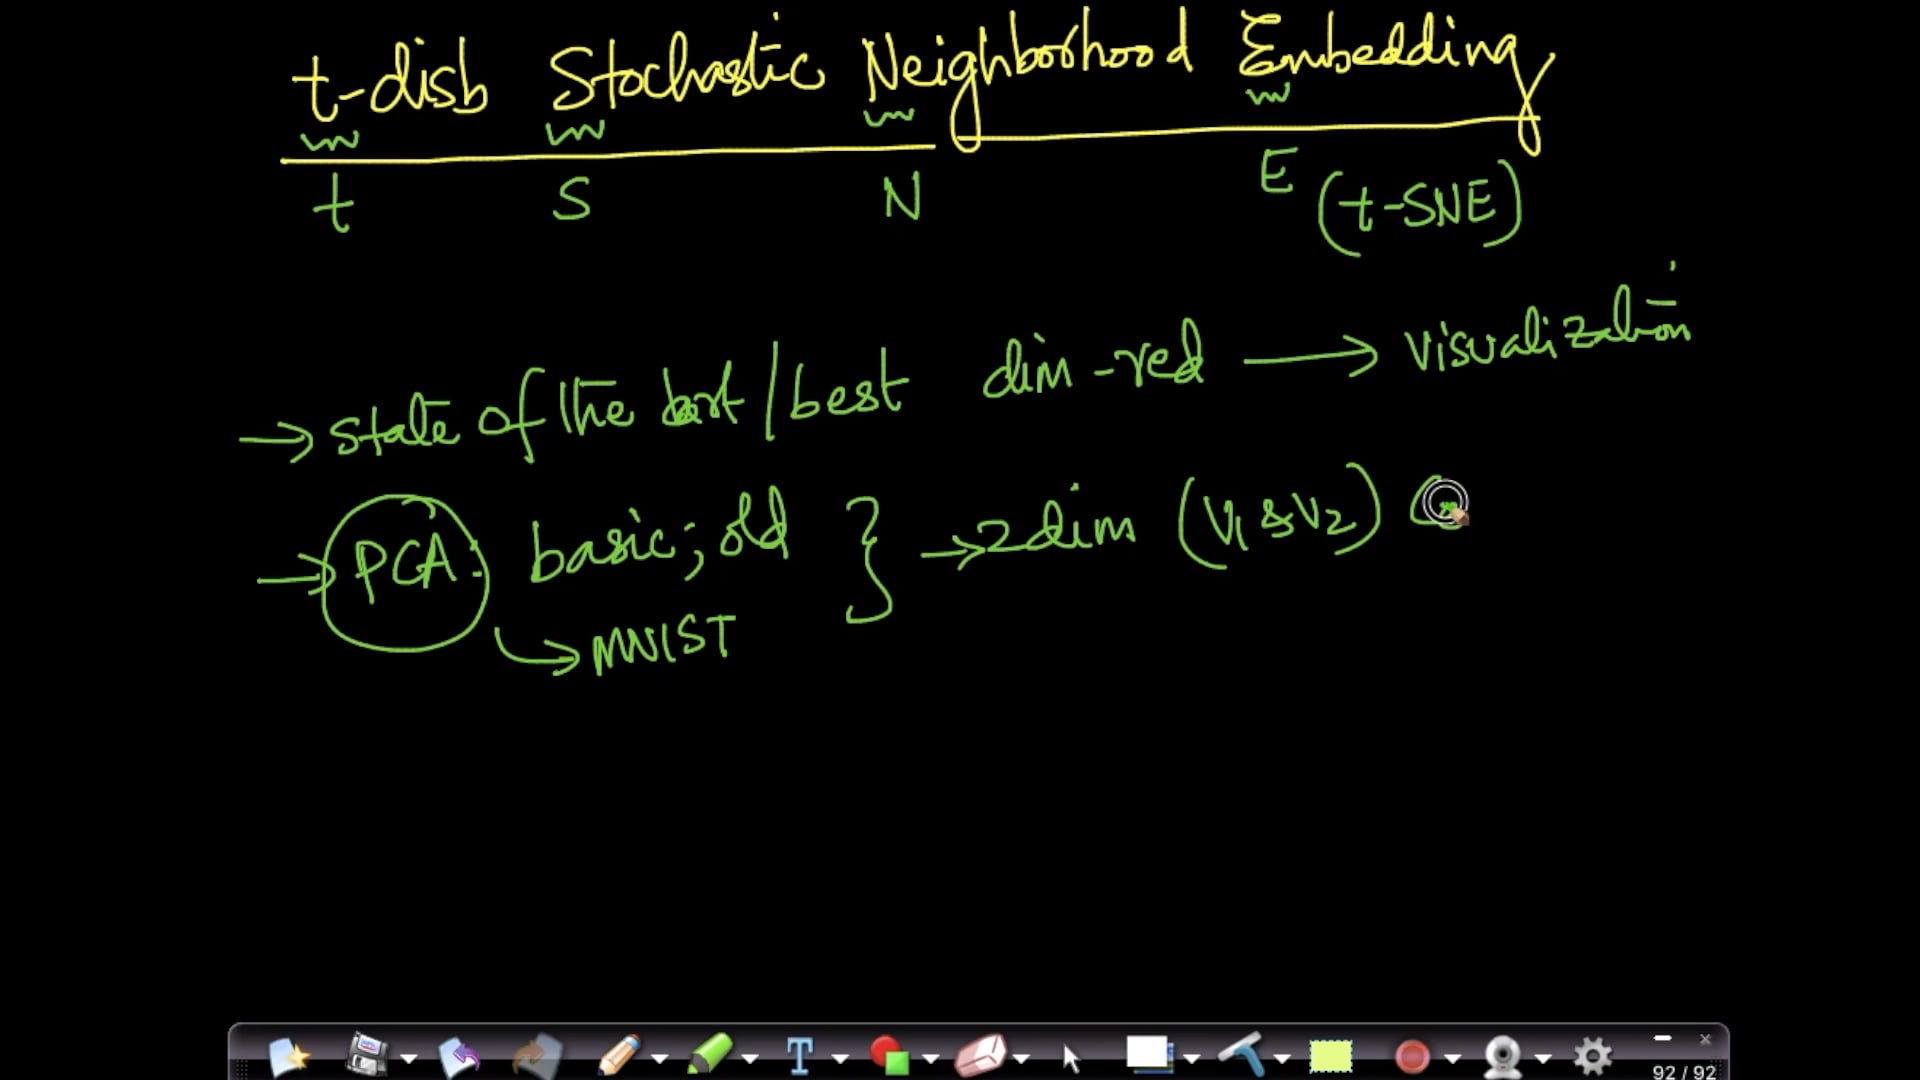 t-disb Stochastic Neighborhood Embedding
t S N E (t-SNE)
→ state of the art / best dim-red → visualization
→ PCA: basic; old } → 2dim (V1 & V2)
↳ MNIST
T
92 / 92